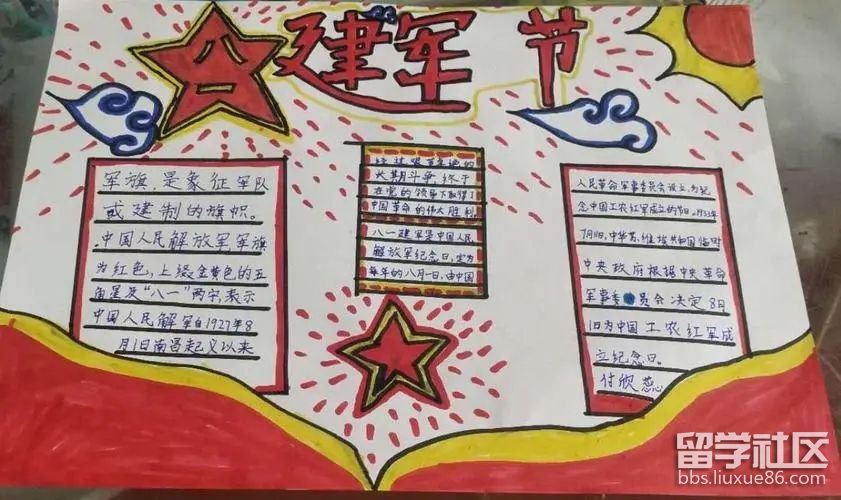 八一
建军节
军旗,是象征军队
或建制的旗帜。
中国人民解放军军旗
为红色,上缀金黄色的五
角星及“八一”两字,表示
中国人民解军自1927年8
月1日南昌起义以来
经过艰苦卓绝的
长期斗争终于
在党的领导下取得了
中国革命的伟大胜利
八一建军是中国人民
解放军纪念日,定为
每年的八月一日,由中国
人民革命军事委员会设立,为纪
念中国工农红军成立的节日。1933年
7月11日,中华苏维埃共和国临时
中央政府根据中央革命
军事委员会决定8月
1日为中国工农红军成
立纪念日。
付欣蕊
留学社区
bbs.liuxue86.com